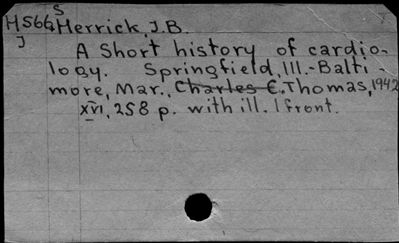 S
H566 Herrick, J.B.
J
A Short history of cardio-
logy. Springfield, Ill.-Balti-
more, Mar., Charles C. Thomas, 1942
XVI, 258 p. with ill. 1 front.